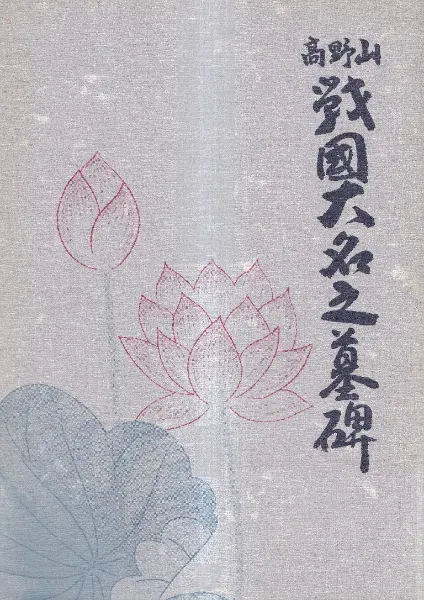 高野山
戦國大名之墓碑